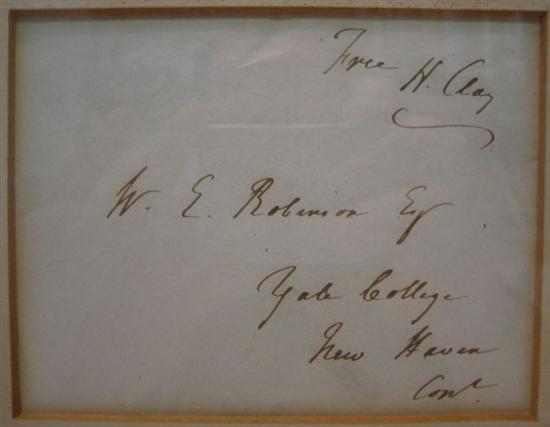 Free
H. Clay
W. E. Robinson Esq
Yale College
New Haven
Cont.